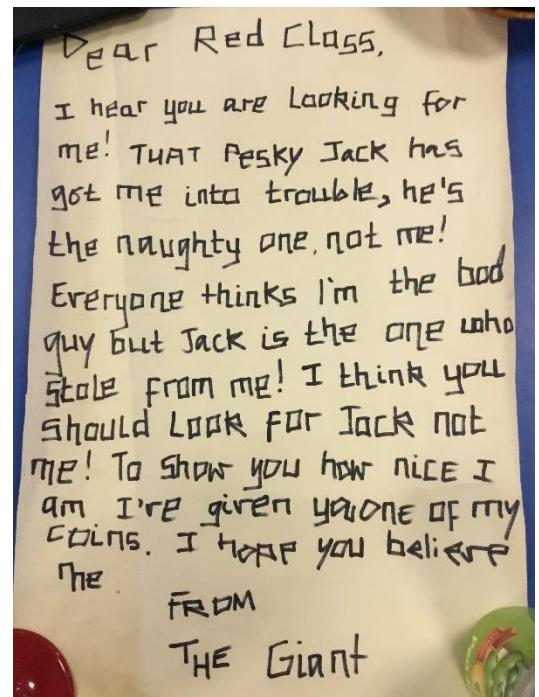 Dear Red Class,
I hear you are Looking for
me! THAT Pesky Jack has
got me into trouble, he's
the naughty one, not me!
Everyone thinks I'm the bad
guy but Jack is the one who
stole from me! I think you
should Look for Jack not
me! To show you how nice I
am I've given you one of my
coins. I hope you believe
me
FROM
THE Giant